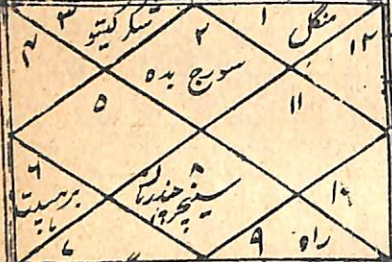 ۳ شکر کیتو
۲
۱ منگل
۱۲
۴
سورج بدہ
۵
۱۱
۶
برہسپت
۸
سینچر
۱۰
۷
۹ راہ